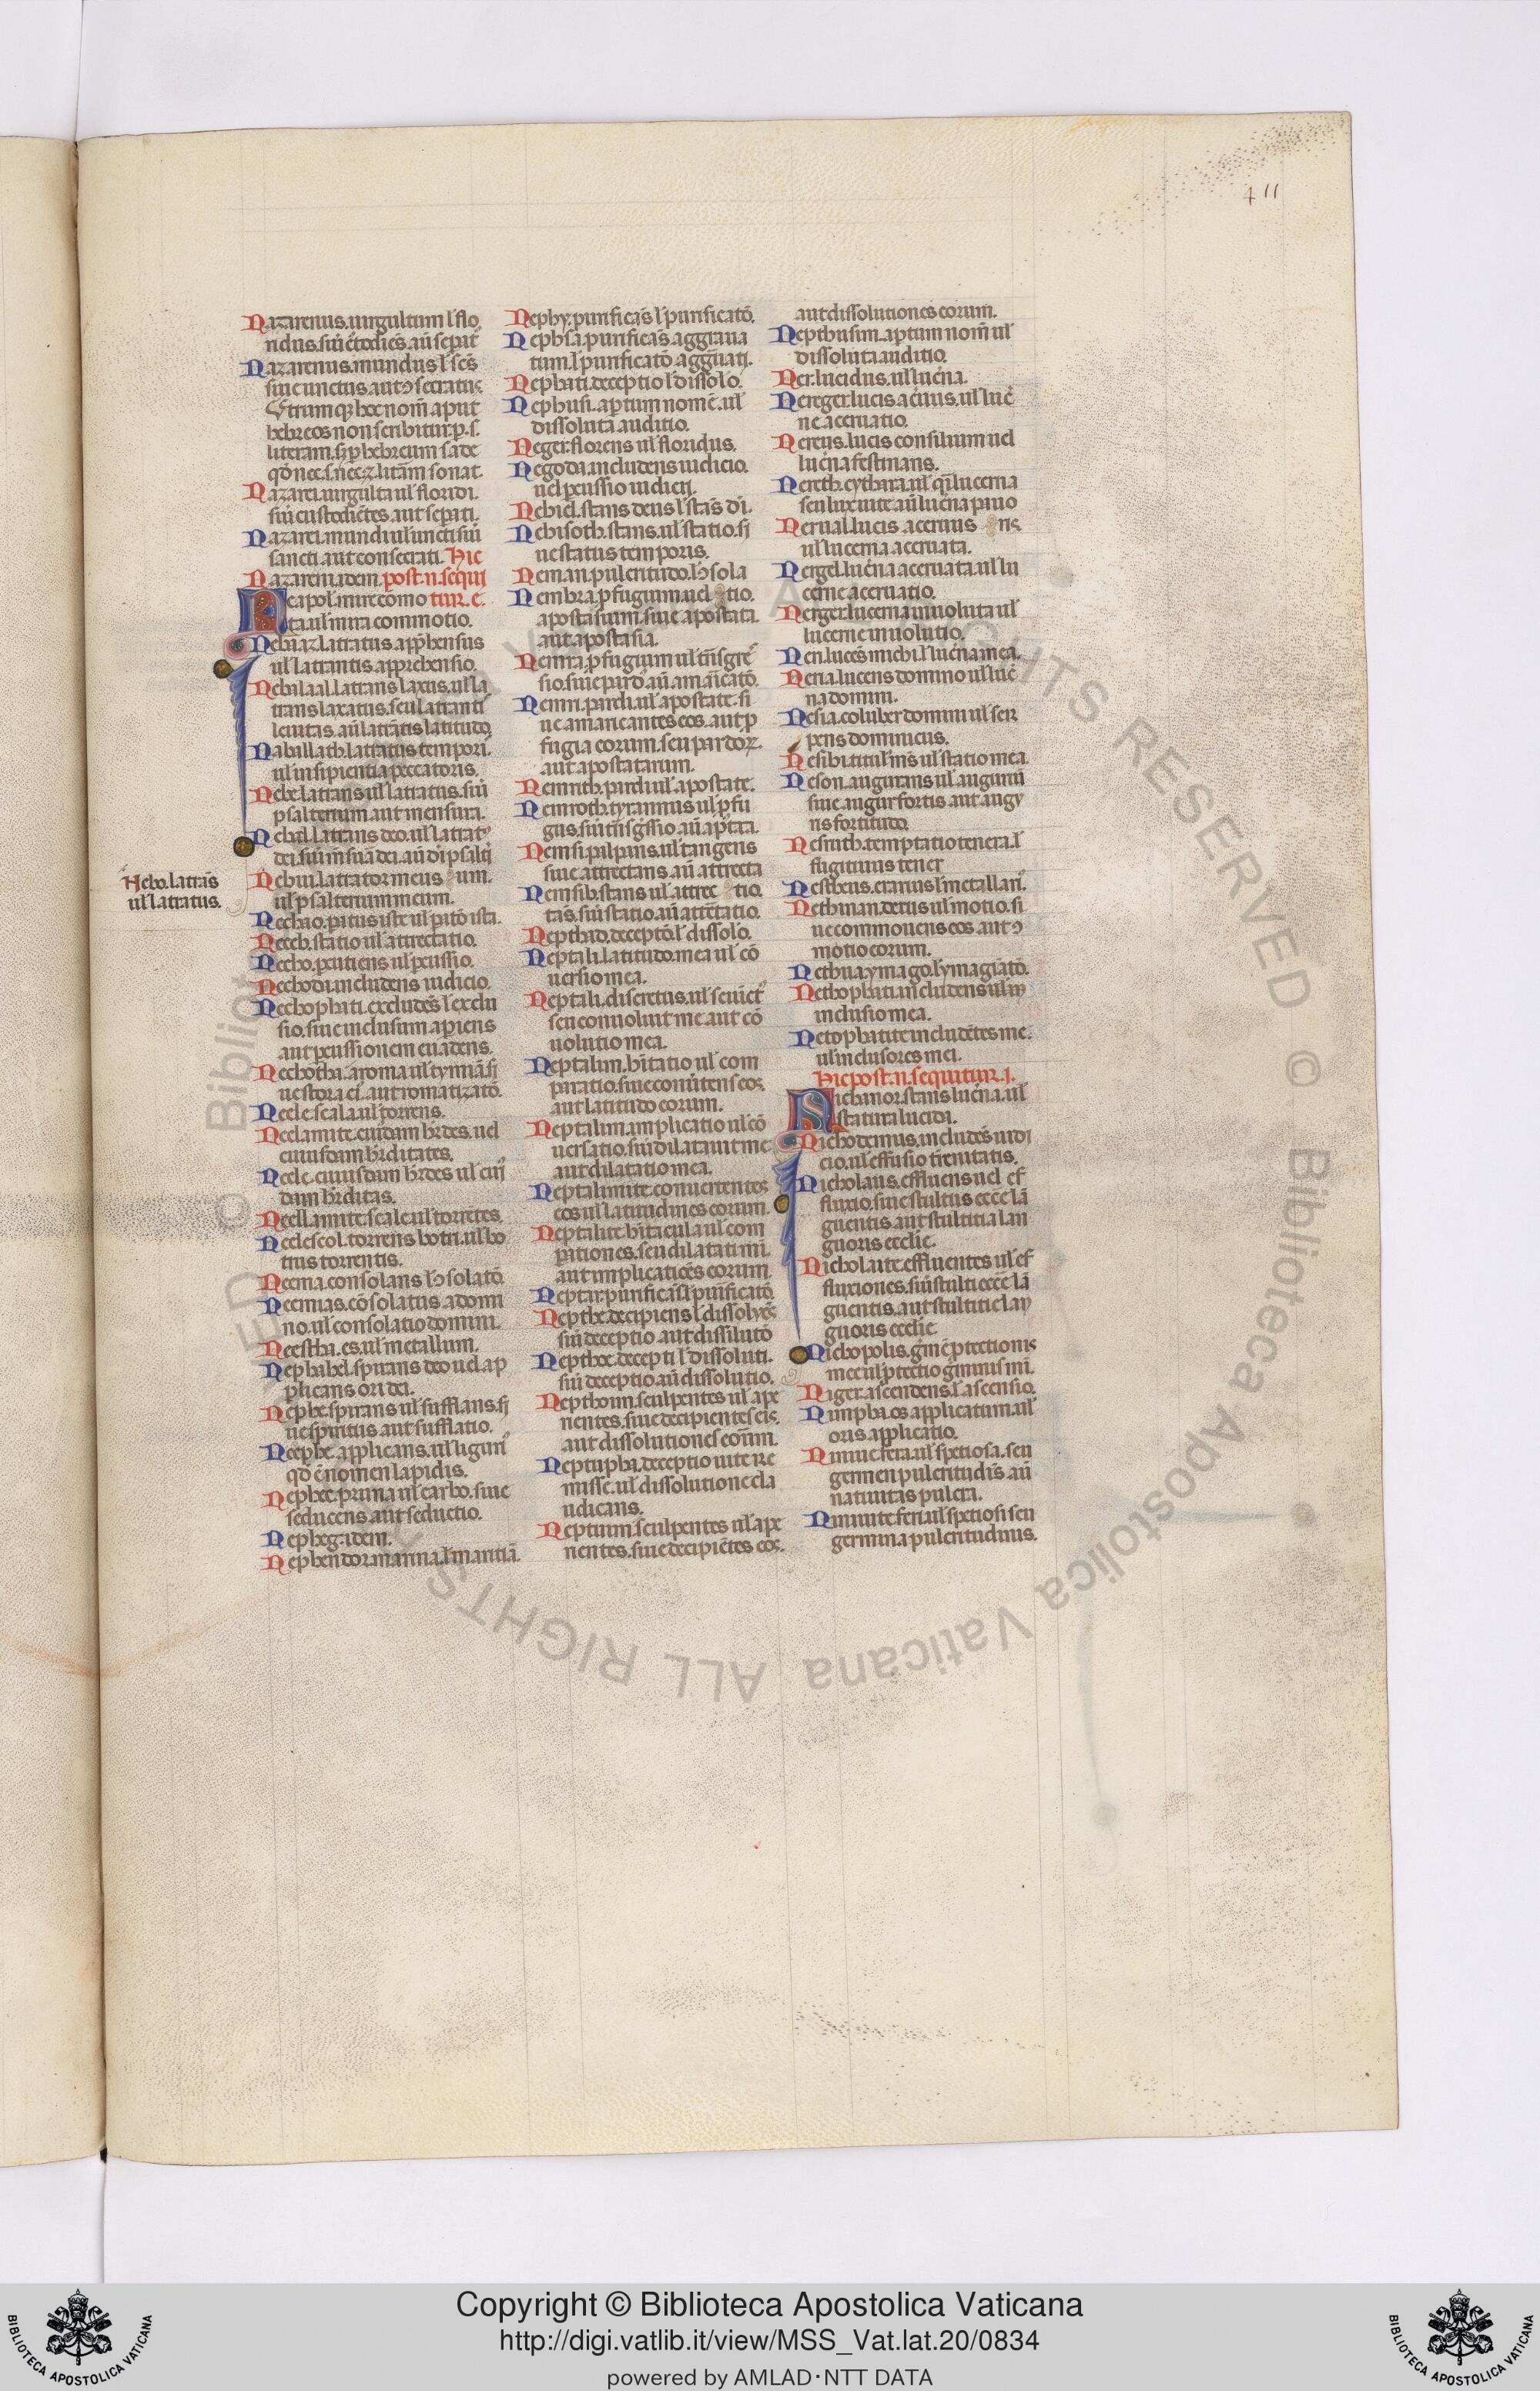 411
Nazarenus. uirgultum ł flo
ridus. siue custodies. aut separat
Nazarenus. mundus ł scs
siue unctus. aut secratus
Utrumque hec nom aput
hebreos non scribitur. p. s.
literam. per hebreum sade
quod nec. s. nec. z. litam sonat.
Nazarei. uirgulta uł floridi.
siue custodietes. aut sepati.
Nazarei. mundi uł uncti siue
sancti. aut consecrati. Hic
Nazarem. idem. post. n. sequi
Neapol. mire como tur. e.
ta. uł mira commotio.
latratus apphensus
uł latrantis apprehensio.
latrans laxus. uł la
trans laxatus. seu latranti
leuitas. aut latratis latitudo
Naballath. latratus tempori.
uł insipientia peccatoris.
Nebe. latrans uł latratus. siue
psalterium. aut mensura.
latrans deo. uł latrat
Nebo. latras
uł latratus.
Nebiu. latrator meus um.
uł psalterium meum.
Nechao. patus iste uł pato ista.
Neceb. statio uł attrectatio.
Necho. peutiens uł peussio.
Nechoda. includens iudicio.
Nechophati. excludes ł exclu
sio. siue inclusum apiens
aut peussionem euadens.
Neele. scala. uł torrens.
cuiusdam hrditates.
dam hrditas.
Neellamite. scale uł torretes.
Neelescol. torrens botri. uł bo
trus torrentis.
Neema. consolans
Neemias. co solatus a domi
no. uł consolatio domini.
Neestha. es. uł metallum.
Nephabel. spirans deo uel ap
plicans ori dei.
Nephe. spirans uł sufflans. si
ue spiritus aut sufflatio.
Nephe. applicans. uł liguri
qd e nomen lapidis.
Nephec. pruna uł carbo. siue
seducens. aut seductio.
Nepheg. idem.
Nephendor. manna. ł mantia.
Nephy. purificas ł purificato.
Nephsa. purificas aggraua
tum. ł purificato aggrauati.
Nephati. deceptio ł dissolo.
Nephusi. apertum nome. uł
dissoluta auditio.
Neger. florens uł floridus.
Negoda. includens iudicio.
uel peussio iudicii.
Nehiel. stans deus ł stas di.
Nehisoth. stans. uł statio. si
ue status temporis.
Neman. pulcritudo. sola
Nembra. pfugium. uel tio.
apostasium. siue apostata
aut apostasia.
Nemra. pfugium uł tnsgre
sio. siue pardo. aut amaricato.
Nemri. pardi. uł apostate. si
ue amaricantes eos. aut p
fugia eorum. seu pardor.
aut apostatarum.
Nemrith. pardi uł apostate.
Nemroth. tyrannus uł pfu
gus. siue
Nemsi. palpans. uł tangens
siue attrectans. aut attrecta
Nemsib. stans uł attrec tio.
tas. siue statio. aut attectatio.
Nepthao. decepto. ł dissolo.
Neptali. latitudo mea uł co
uersio mea.
Neptali. discretus. uł
seu conuoluit me aut co
uolutio mea.
Neptalim. hitatio uł com
paratio. siue conutens eos.
aut latitudo eorum.
Neptalim. implicatio uł co
uersatio. siue dilatauit me
aut dilatatio mea.
Neptalimite. conuertentes
eos uł latitudines eorum
Neptalite. hitacula uł com
pationes. seu dilatati mi.
aut implicatices eorum.
Neptar. purificas ł purificato.
Nepthe. decipiens ł dissolues
siue deceptio. aut dissiluto
Nepthoe. decepti ł dissoluti.
siue deceptio. aut dissolutio.
Nepthoim. sculpentes uł ape
rientes. siue decipientes eis.
aut dissolutiones eorum.
Neptupha. deceptio uite re
misse. uł dissolutione cla
udicans.
Neptuim. sculpentes uł ape
rientes. siue decipietes eos.
aut dissolutiones eorum.
Nepthusim. aptum nom uł
dissoluta auditio.
Ner. lucidus. uł lucna.
Nereger. lucis aceruus. uł luc
ne aceruatio.
Nereus. lucis consilium uel
lucna festinans.
Nereth. cythara. uł qsi lucerna
seu lux uite. aut lucna paruo
Nerual. lucis aceruus ns
uł lucerna aceruata.
Nergel. lucna aceruata. uł lu
cerne aceruatio.
Nerger. lucerna inuoluta uł
lucerne inuolutio.
Neri. luces michi. ł lucna mea.
Neria. lucens domino uł luc
na domini.
Nesia. coluber domini uł ser
pens dominicus.
Nesibi. titul ms uł statio mea
Neson. augurans uł augurii
siue. augur fortis. aut augu
ris fortitudo.
Nesrath. temptatio tenera. ł
fugitiuus tener
Nestheus. erarius ł metallari.
Nethinan. derus uł motio. si
ue commouens eos aut
motio eorum.
Nethua. ymago. ł ymagiato.
Nethophati. includens uł in
inclusio mea.
Netophatite. includetes me.
uł inclusores mei.
Hic post. n. sequitur. i.
Nichanor. stans lucna. uł
statura lucida.
Nichodemus. includes iudi
cio. uł effusio trenitatis.
Nicholaus. effluens uel ef
fluxio. siue stultus eccle la
guentis. aut stultitia lan
guoris ecclie.
Nicholaite. effluentes uł ef
fluxiones. siue stulti eccle la
guentis. aut stultitie lan
guoris ecclie
Nichopolis. gmen ptectionis
mee uł ptectio gminis mi.
Niger. ascendens. ł ascensio.
Nimpha. os applicatum. uł
oris applicatio.
Niniue. fera. uł spetiosa. seu
germen pulcritudis. aut
natiuitas pulcra.
Niniuite. feri. uł spetiosi seu
germina pulcritudinis.
© Biblioteca Apostolica Vaticana ALL RIGHTS RESERVED
Copyright © Biblioteca Apostolica Vaticana
http://digi.vatlib.it/view/MSS_Vat.lat.20/0834
powered by AMLAD·NTT DATA
BIBLIOTECA APOSTOLICA VATICANA
BIBLIOTECA APOSTOLICA VATICANA